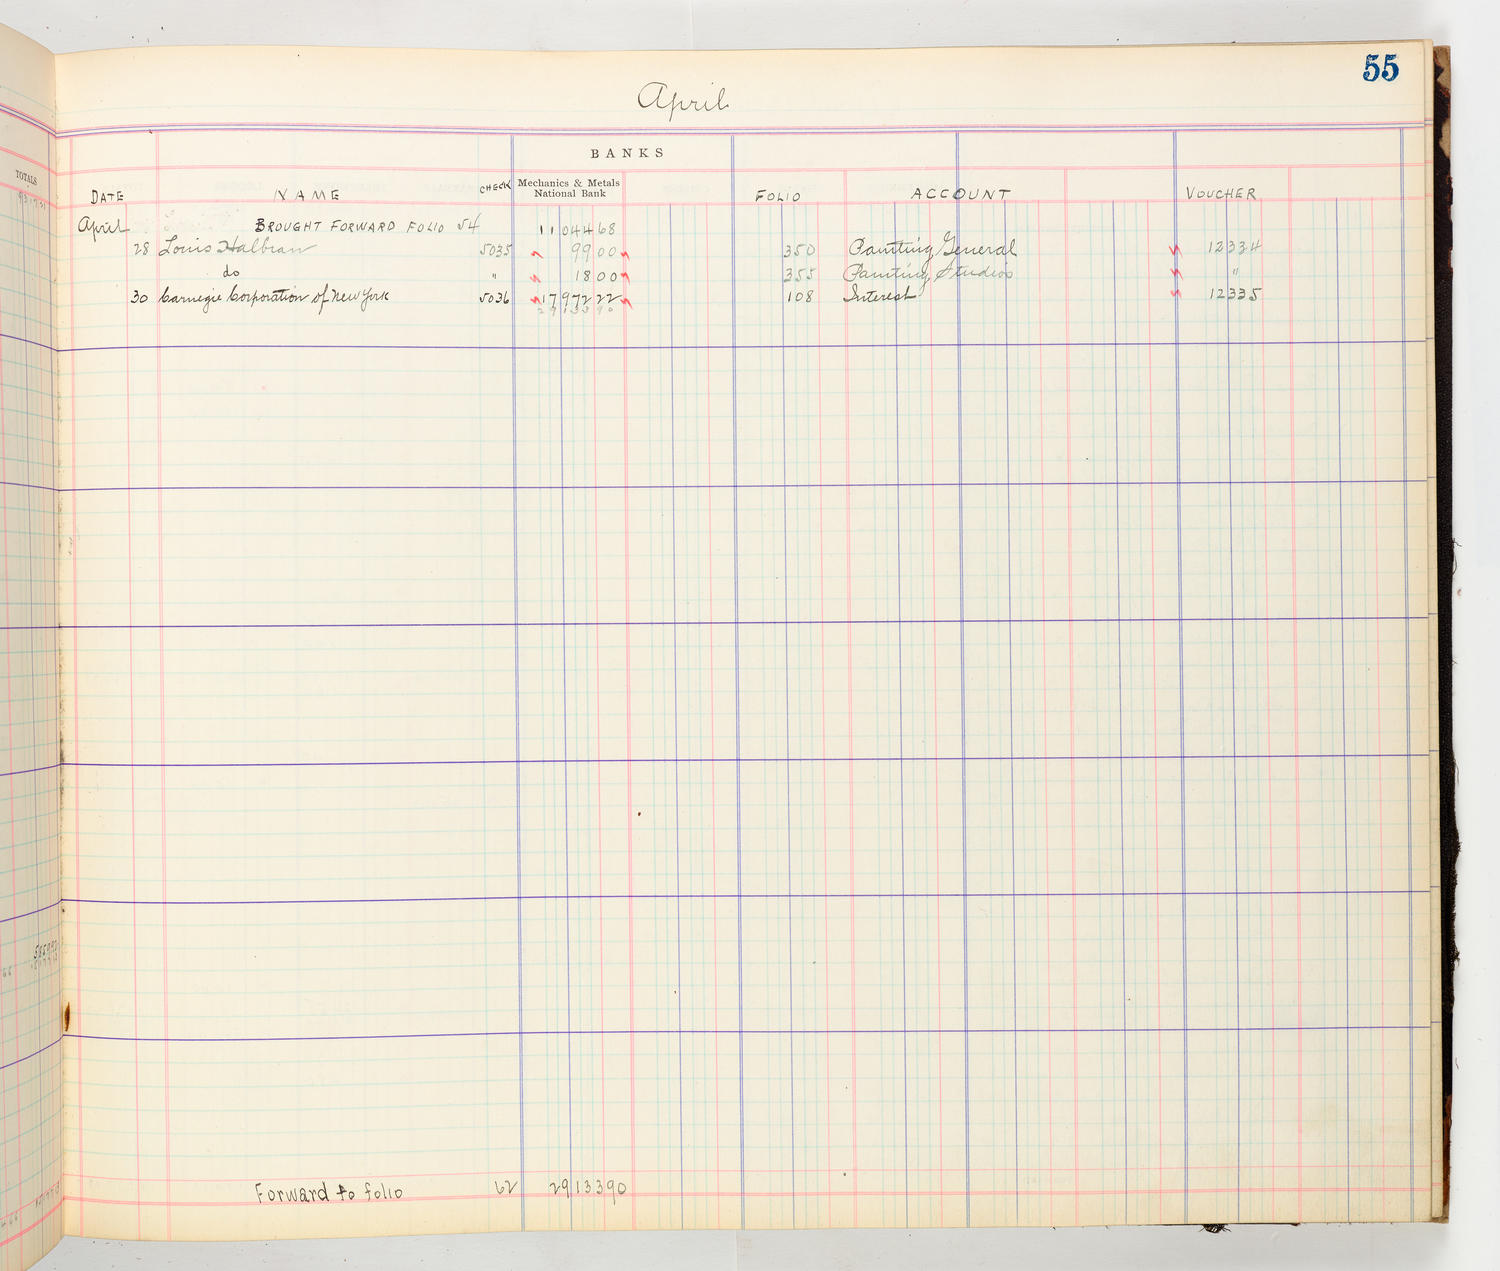 55
April
TOTALS
BANKS
DATE NAME CHECK Mechanics & Metals National Bank FOLIO ACCOUNT VOUCHER
April BROUGHT FORWARD FOLIO 54 11044 68
28 Louis Halbran 5035 99 00 350 Painting General 12334
do " 18 00 355 Painting Studios "
30 Carnegie Corporation of New York 5036 17972 22 108 Interest 12335
29133 90
Forward to folio 62 29133 90